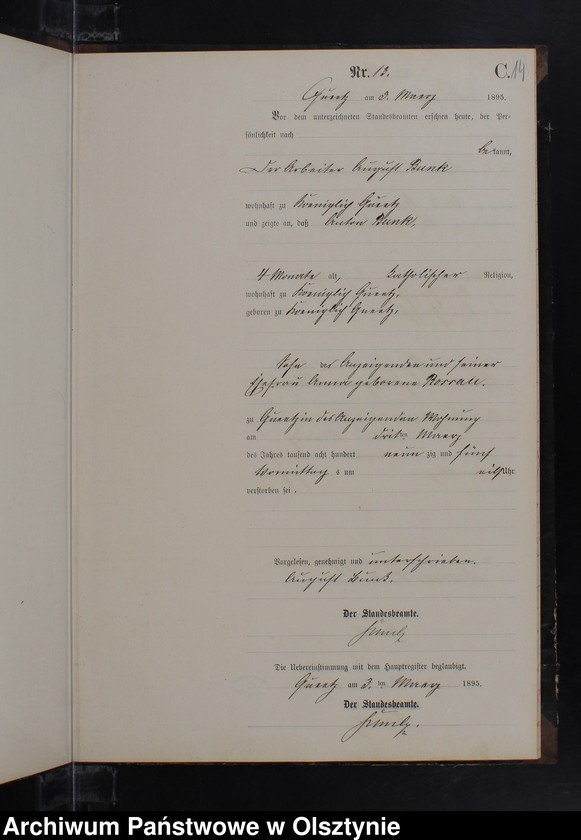 Nr. 13.
C. 14
Queetz am 3. Maerz 1895.
Vor dem unterzeichneten Standesbeamten erschien heute, der Per-
sönlichkeit nach
bekannt,
Der Arbeiter August Bunk
wohnhaft zu Koeniglich Queetz
und zeigte an, daß Anton Bunk,
4 Monate alt, katholischer Religion,
wohnhaft zu Koeniglich Queetz,
geboren zu Koeniglich Queetz,
Sohn des Anzeigenden und seiner
Ehefrau Anna geborene
zu Queetz in des Anzeigenden Wohnung
am dritten Maerz
des Jahres tausend acht hundert neunzig und fünf
Vormittags um eilf Uhr
verstorben sei.
Vorgelesen, genehmigt und unterschrieben.
August Bunk.
Der Standesbeamte.
Die Uebereinstimmung mit dem Hauptregister beglaubigt.
Queetz am 3. ten Maerz 1895.
Der Standesbeamte.
Archiwum Państwowe w Olsztynie